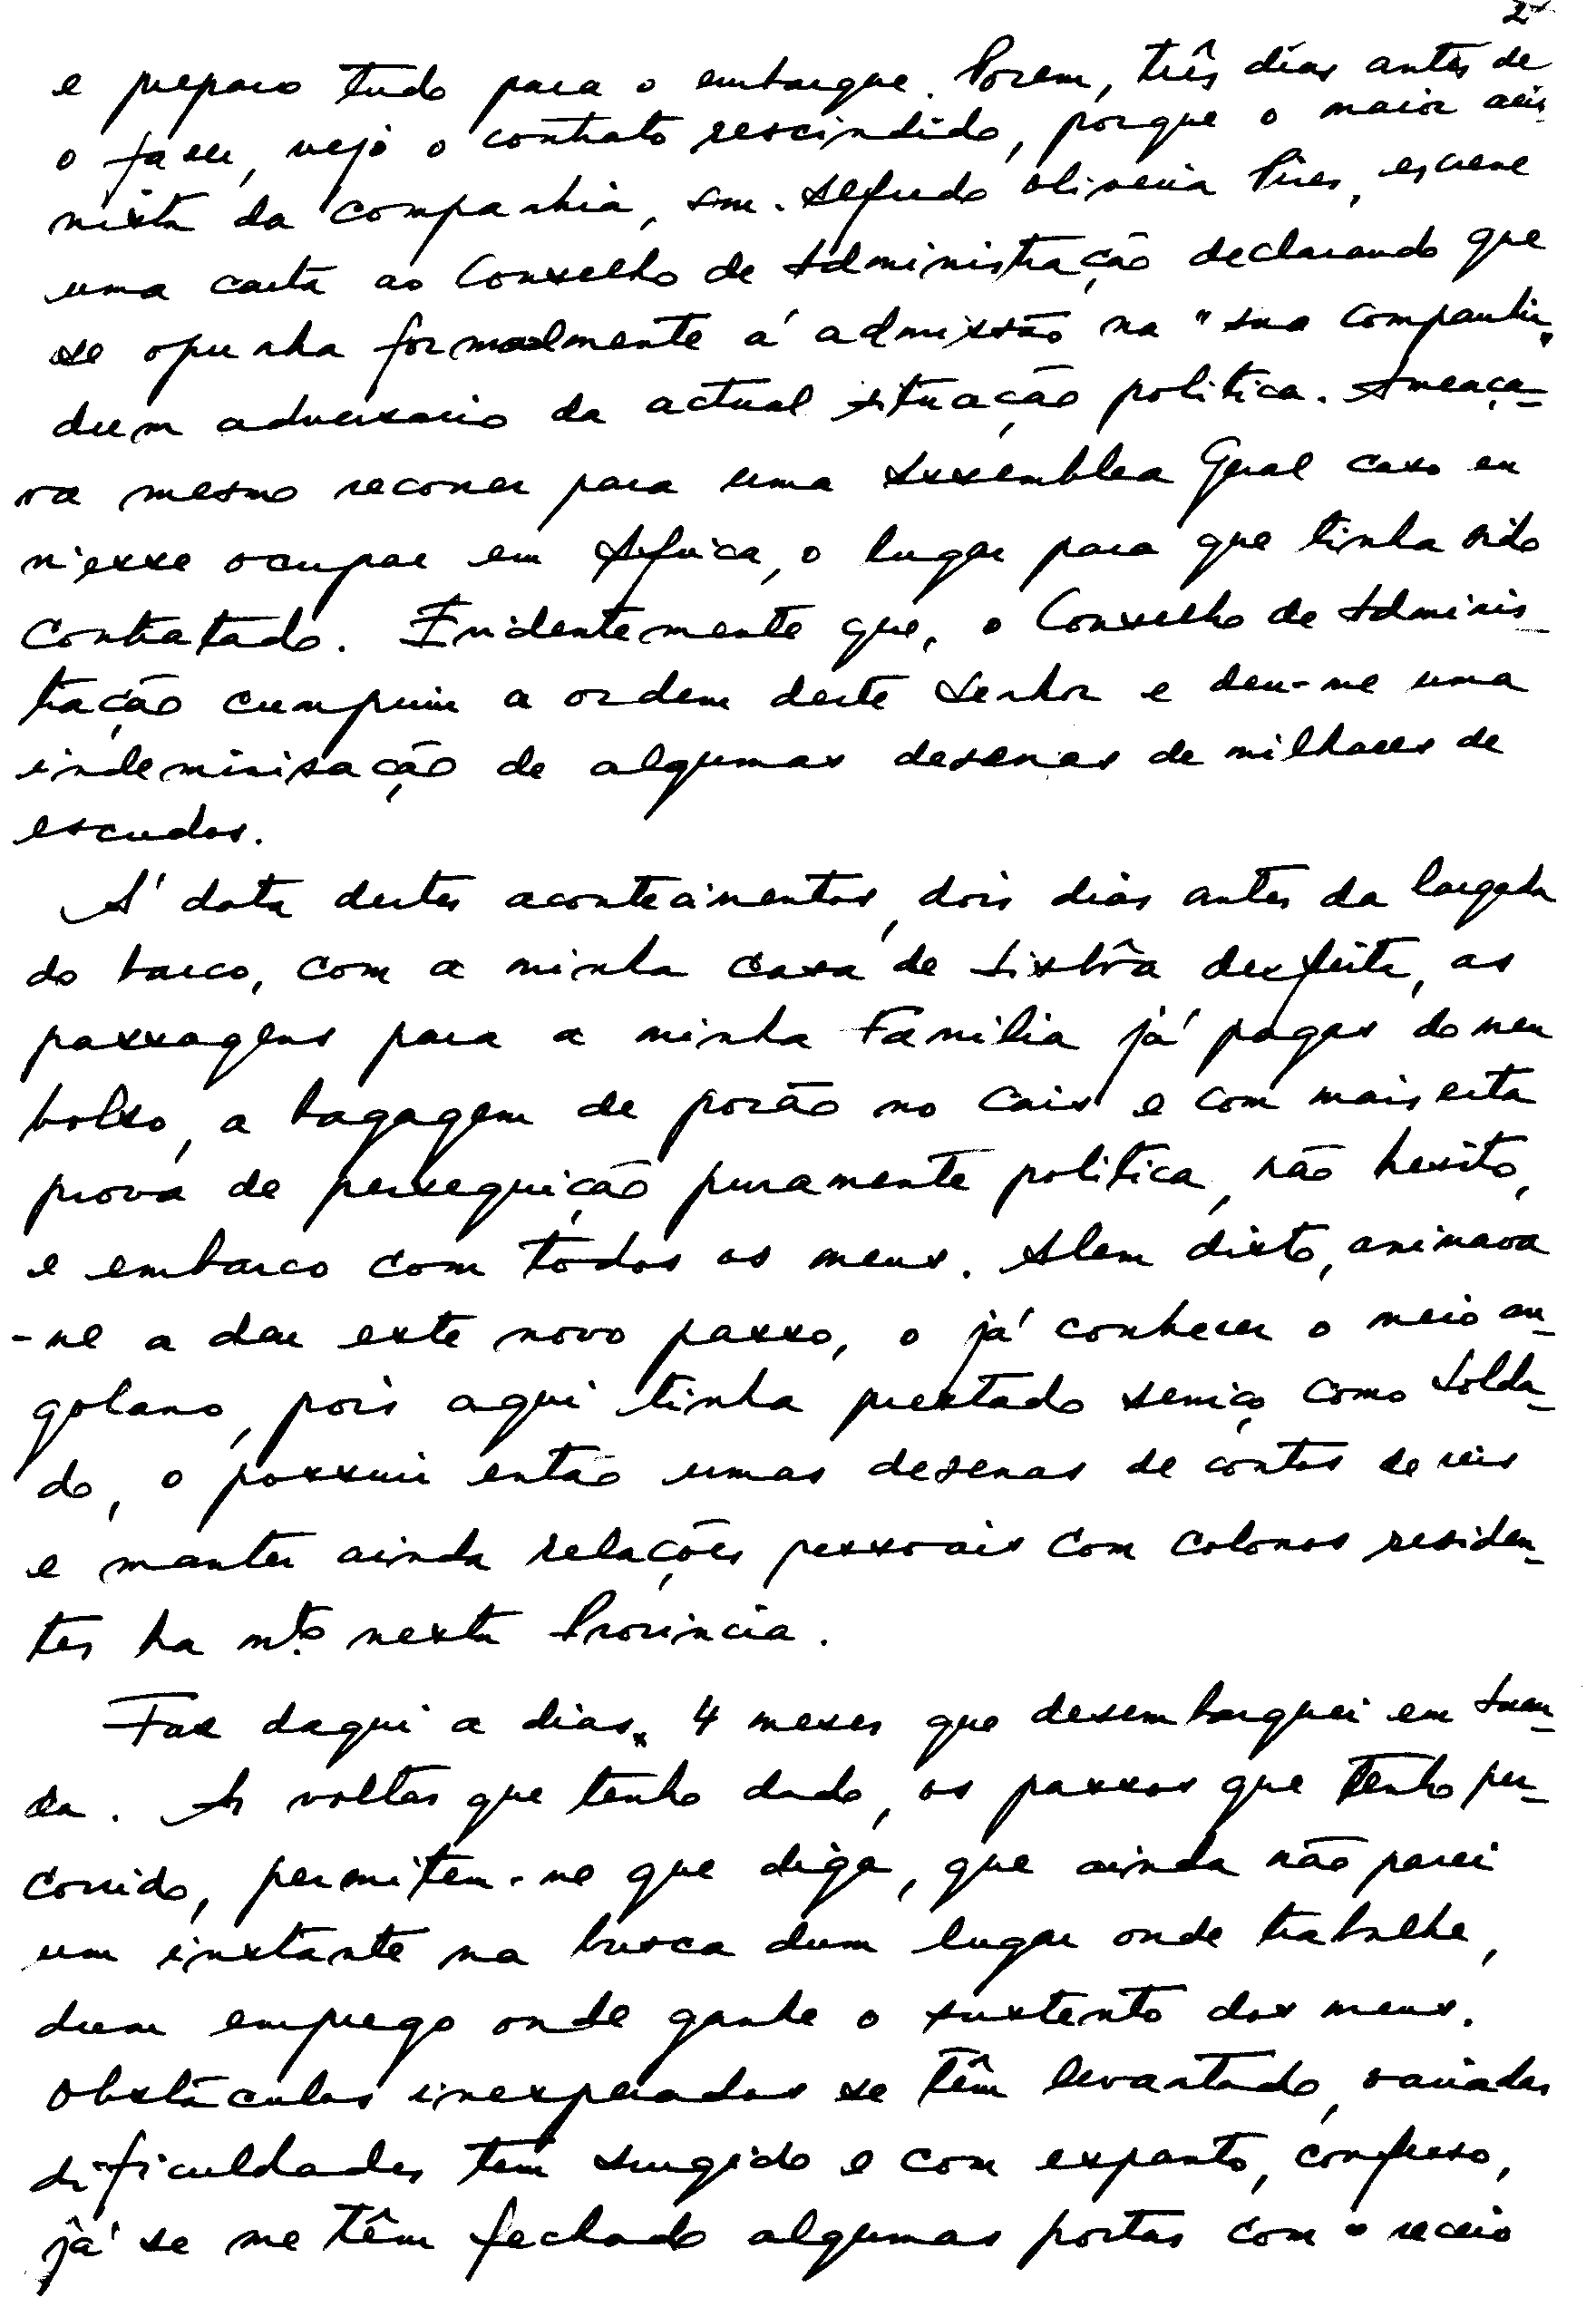 2
e preparo tudo para o embarque. Porem, três dias antes de
o fazer, vejo o contrato rescindido, porque o maior acio-
nista da Companhia, snr. Alfredo Oliveira Pires, escreve
uma carta ao Conselho de Administração declarando que
se opunha formalmente á admissão na "sua Companhia"
dum adversario da actual situação politica. Ameaça-
va mesmo recorrer para uma Assemblea Geral caso eu
viesse ocupar em Africa, o lugar para que tinha sido
contratado. Evidentemente que, o Conselho de Adminis-
tração cumpriu a ordem deste Senhor e deu-me uma
indeminisação de algumas desenas de milhares de
escudos.
Á data destes acontecimentos, dois dias antes da largada
do barco, com a minha casa de Lisbôa desfeita, as
passagens para a minha Familia já pagas do meu
bolso, a bagagem de porão no cais e com mais esta
prova de perseguição puramente politica, não hesito,
e embarco com todos os meus. Alem disto, animava
-me a dar este novo passo, o já conhecer o meio an-
golano, pois aqui tinha prestado serviço como Solda-
do, o possuir então umas desenas de contos de reis
e manter ainda relações pessoais com colonos residen-
tes ha mto. nesta Provincia.
Faz daqui a dias, 4 meses que desembarquei em Luan-
da. As voltas que tenho dado, os passos que tenho per-
corrido, permitem-me que diga, que ainda não parei
um instante na busca dum lugar onde trabalhe,
dum emprego onde ganhe o sustento dos meus.
Obstáculos inesperados se têm levantado, variadas
dificuldades tem surgido e com espanto, confesso,
já se me têm fechado algumas portas com o receio